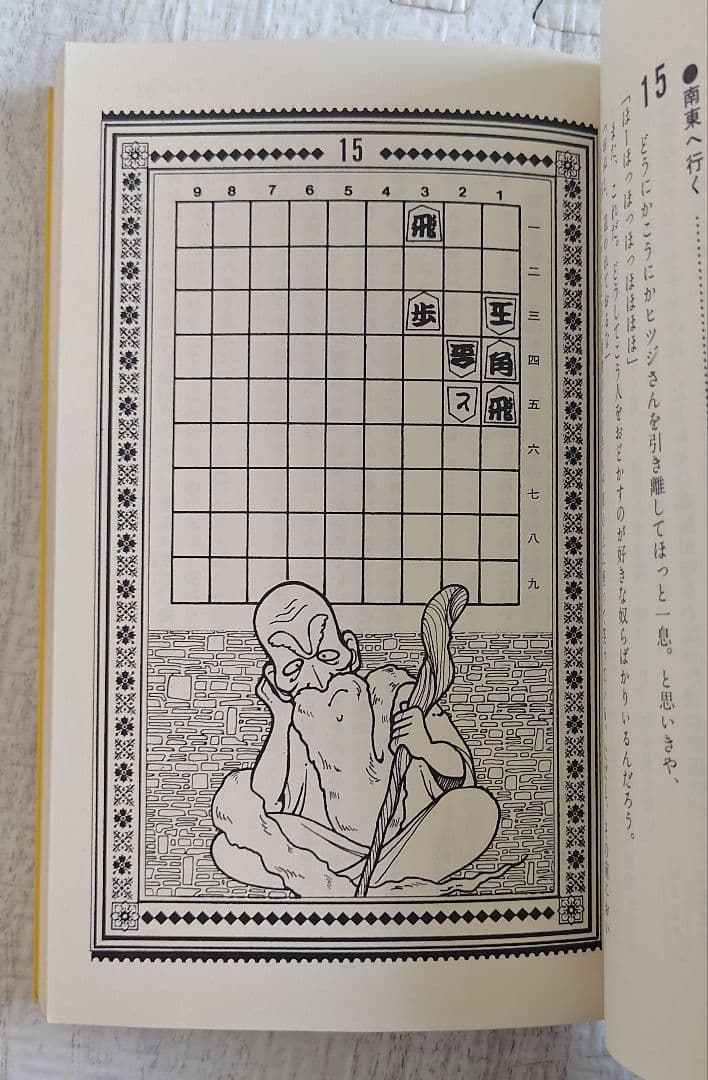 ●南東へ行く
15
どうにかこうにかヒツジさんを引き離してほっと一息。と思いきや、
「ほーほっほっほっほほほほ」
まただ、これだ。どうしてこう人をおどかすのが好きな奴らばかりいるんだろう。
15
9 8 7 6 5 4 3 2 1
飛 一
二
歩 王 三
角 四
飛 五
六
七
八
九